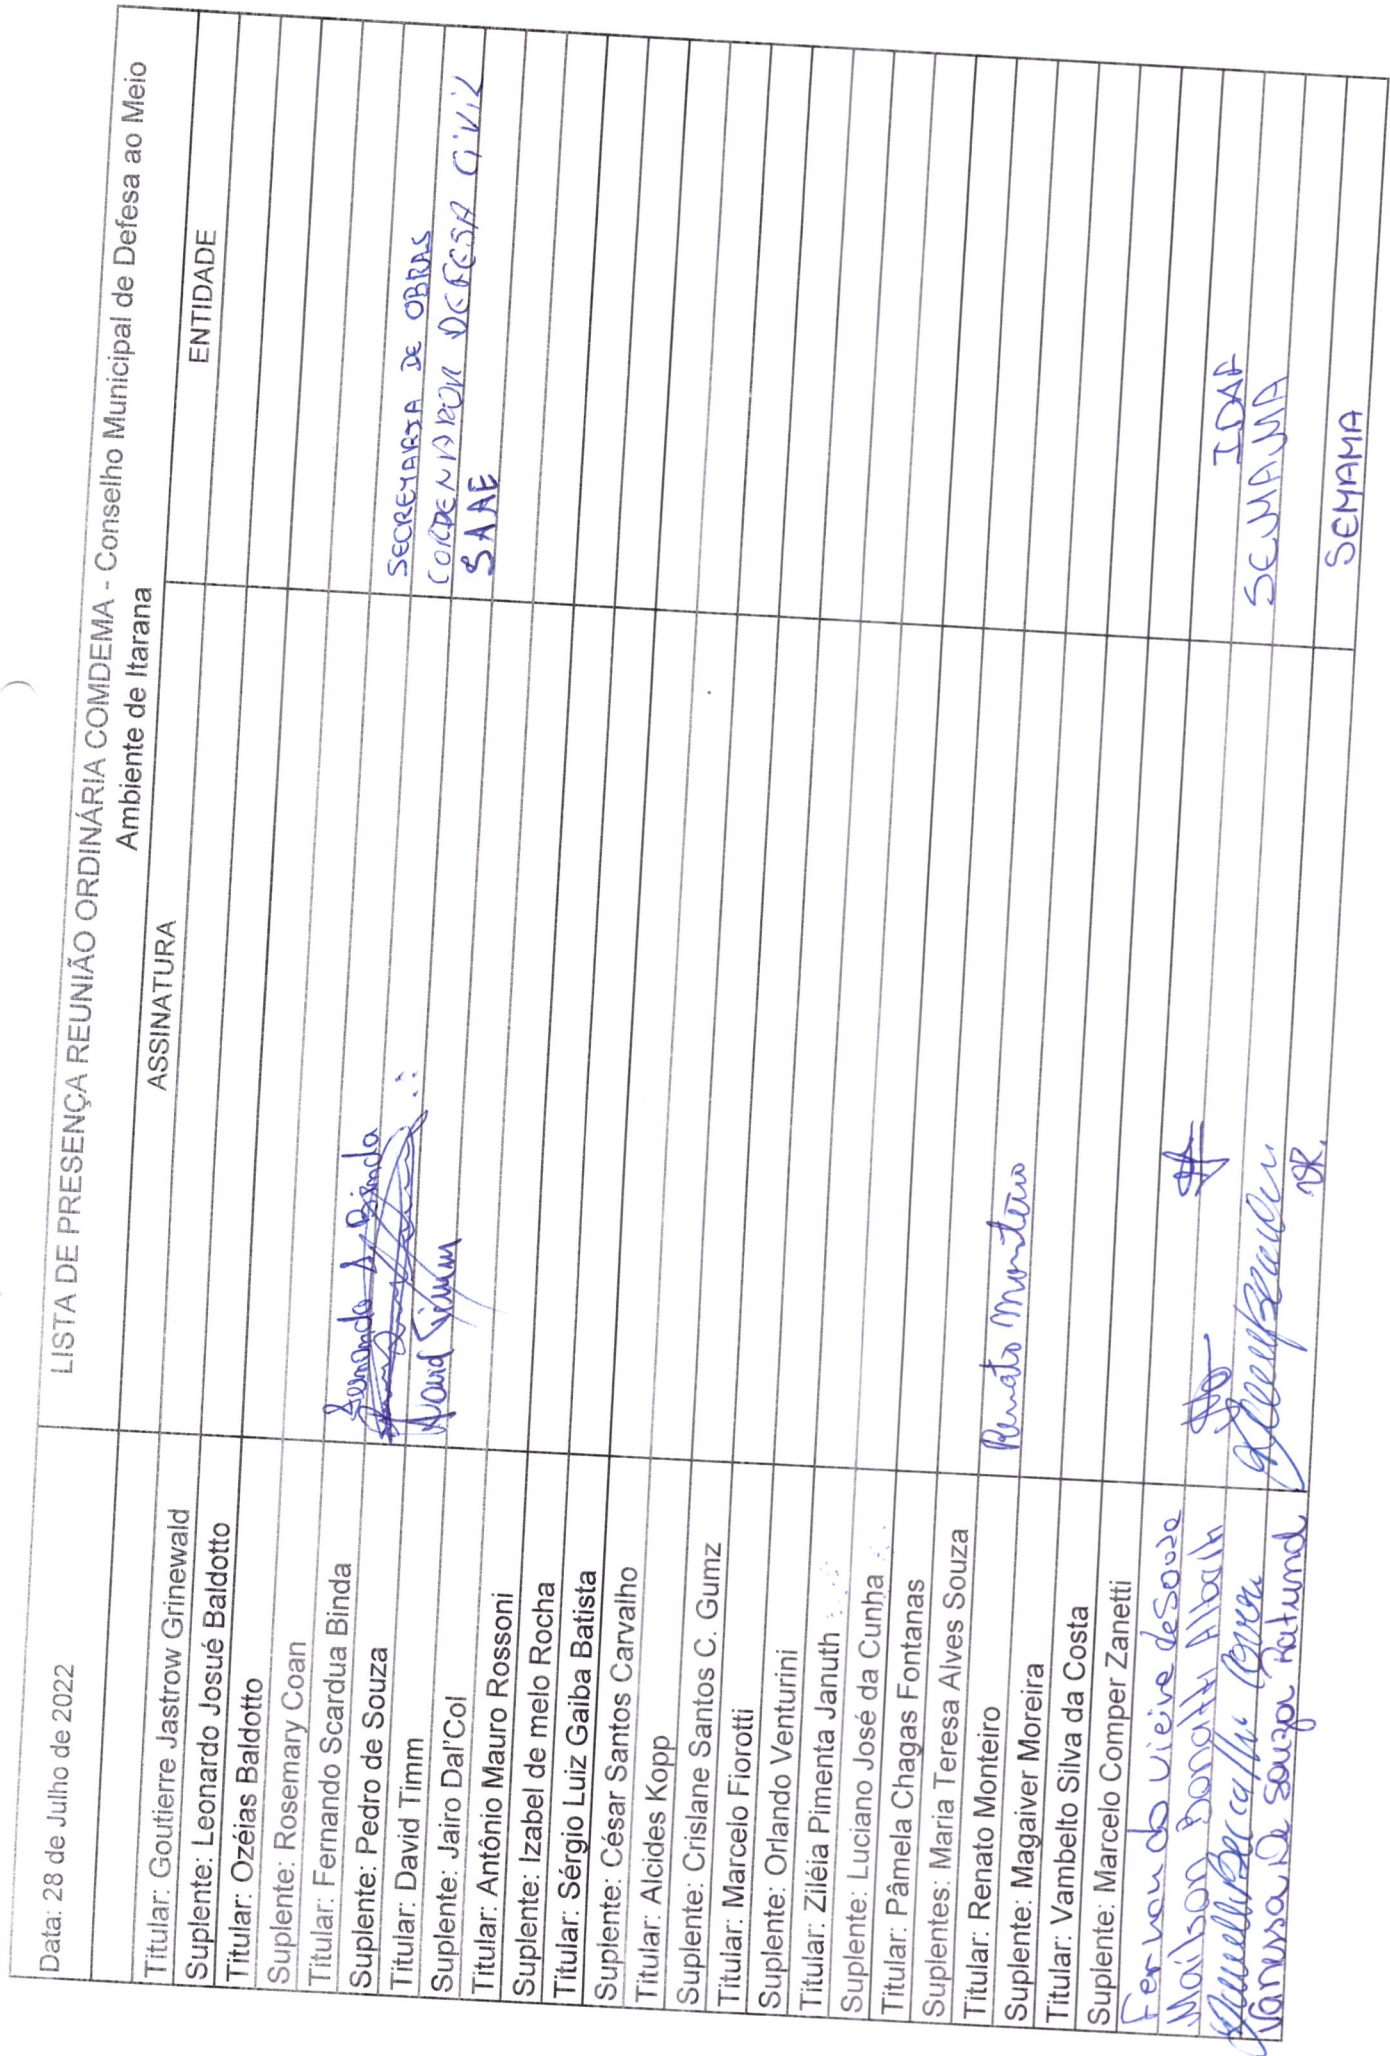 Data: 28 de Julho de 2022
LISTA DE PRESENÇA REUNIÃO ORDINÁRIA COMDEMA - Conselho Municipal de Defesa ao Meio
Ambiente de Itarana
ASSINATURA ENTIDADE
Titular: Goutierre Jastrow Grinewald
Suplente: Leonardo Josué Baldotto
Titular: Ozéias Baldotto
Suplente: Rosemary Coan
Titular: Fernando Scardua Binda Fernando S. Binda
Suplente: Pedro de Souza SECRETARIA DE OBRAS
Titular: David Timm David Timm CORDENADOR DEFESA CIVIL
Suplente: Jairo Dal'Col SAAE
Titular: Antônio Mauro Rossoni
Suplente: Izabel de melo Rocha
Titular: Sérgio Luiz Gaiba Batista
Suplente: César Santos Carvalho
Titular: Alcides Kopp
Suplente: Crislane Santos C. Gumz
Titular: Marcelo Fiorotti
Suplente: Orlando Venturini
Titular: Ziléia Pimenta Januth
Suplente: Luciano José da Cunha
Titular: Pâmela Chagas Fontanas
Suplentes: Maria Teresa Alves Souza
Titular: Renato Monteiro Renato Monteiro
Suplente: Magaiver Moreira
Titular: Vambelto Silva da Costa
Suplente: Marcelo Comper Zanetti
Fernando Vieira de Souza
Mailson IDAF
SEMAMA
Vanussa de Souza Ratund VR. SEMAMA